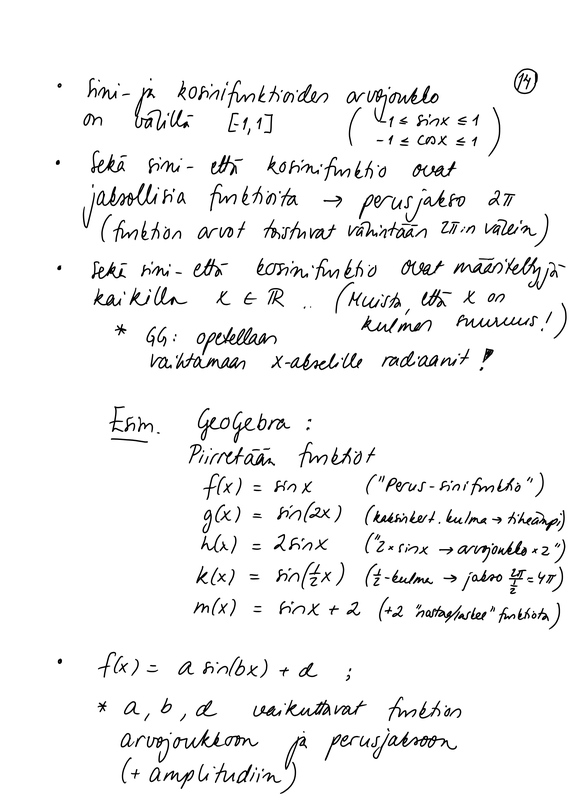 14
• Sini- ja kosinifunktioiden arvojoukko
on välillä [-1,1] ( -1 ≤ sinx ≤ 1
-1 ≤ cosx ≤ 1 )
• Sekä sini- että kosinifunktio ovat
jaksollisia funktioita → perusjakso 2π
(funktion arvot toistuvat vähintään 2π:n välein)
• Sekä sini- että kosinifunktio ovat määriteltyjä
kaikilla x ∈ ℝ .. (Muista, että x on
kulman suuruus!)
* GG: opetellaan
vaihtamaan x-akselille radiaanit !
Esim. GeoGebra :
Piirretään funktiot
f(x) = sinx ("Perus-sinifunktio")
g(x) = sin(2x) (kaksinkert. kulma → tiheämpi)
h(x) = 2sinx ("2×sinx → arvojoukko ×2")
k(x) = sin(½x) (½-kulma → jakso 2π/½ = 4π)
m(x) = sinx + 2 (+2 "nostaa/laskee" funktiota)
• f(x) = a sin(bx) + d ;
* a, b, d vaikuttavat funktion
arvojoukkoon ja perusjaksoon
(+ amplitudiin)